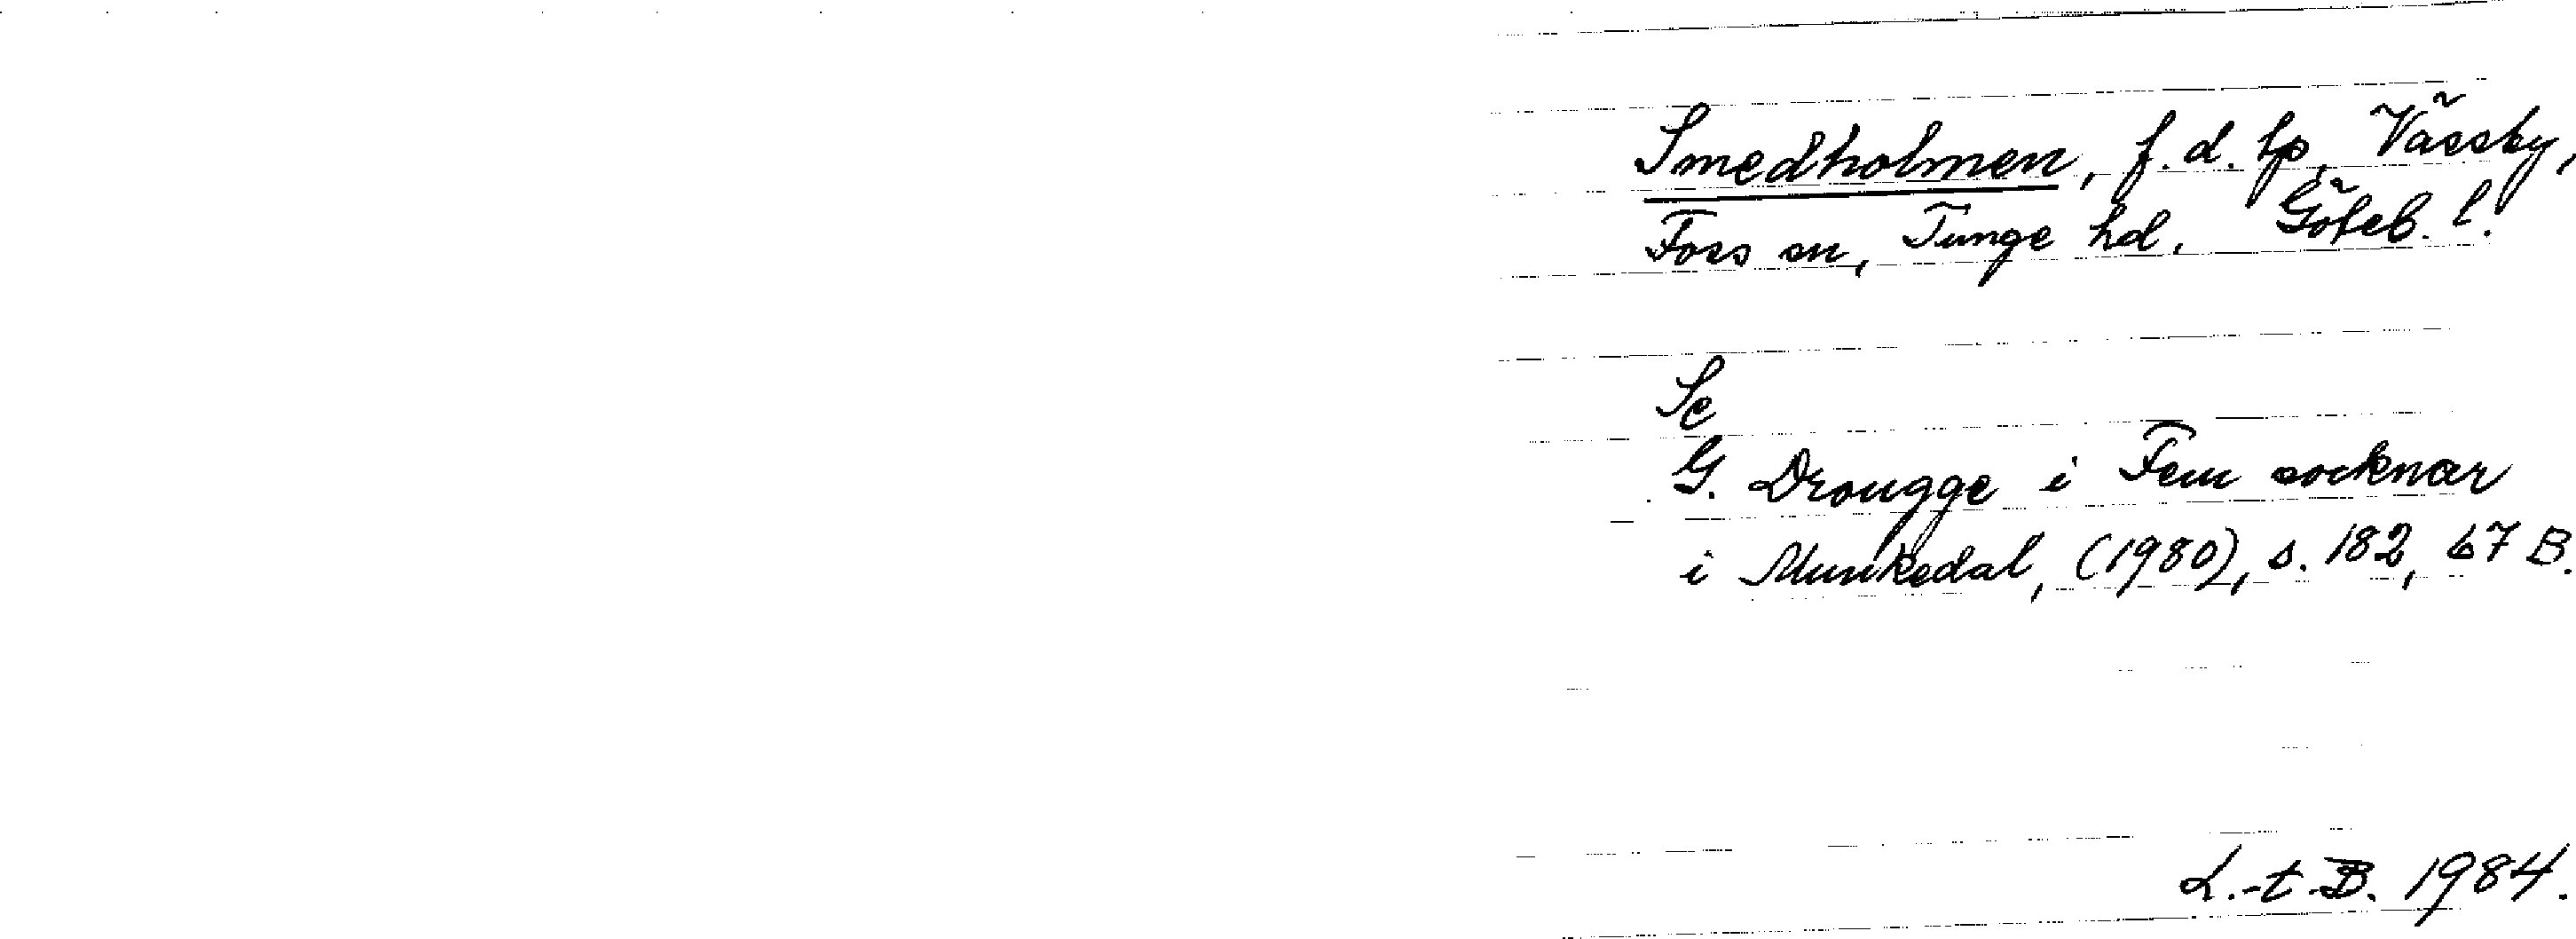 Smedholmen, f.d. tp, Vässby,
Foss sn, Tunge hd. Göteb. l.
Se
G. Drougge i Fem socknar
i Munkedal, (1980), s. 182, 67 B.
L.-t B. 1984.